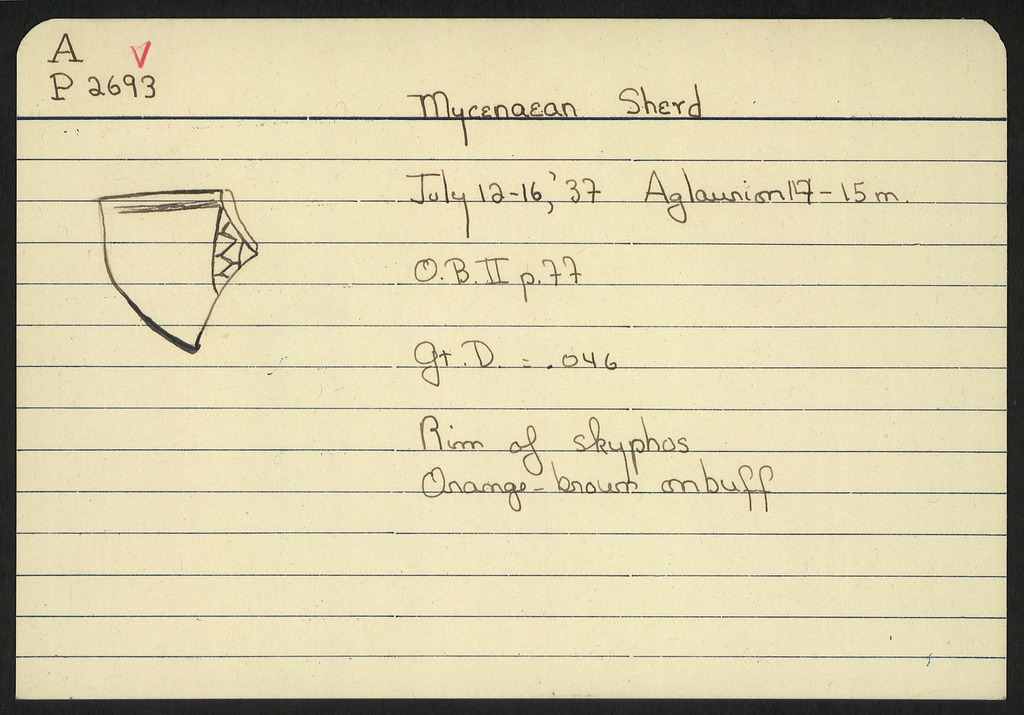 A
P 2693
Mycenaean Sherd
July 12-16, '37 Aglaurion 17-15 m.
O.B. II p. 77
Gt. D. = .046
Rim of skyphos
Orange-brown on buff